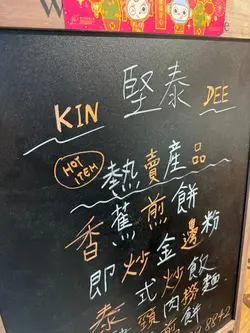 KIN 堅泰 DEE
HOT ITEM
熱賣產品
香蕉煎餅
即炒金邊粉
泰式炒飯麵
頸肉
8842